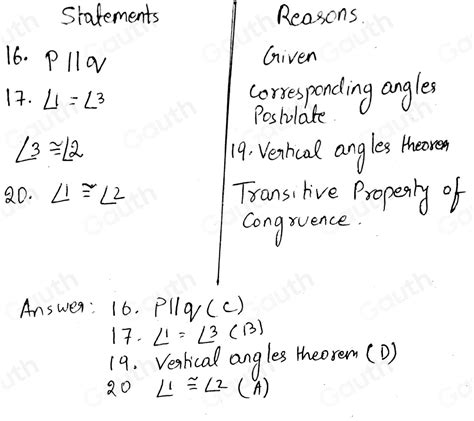 Statements Reasons.
16. P || q Given
17. ∠1 = ∠3 Corresponding angles
Postulate.
∠3 ≅ ∠2 19. Vertical angles theorem
20. ∠1 ≅ ∠2 Transitive Property of
Congruence.
Answer: 16. P || q (C)
17. ∠1 = ∠3 (B)
19. Vertical angles theorem (D)
20 ∠1 ≅ ∠2 (A)